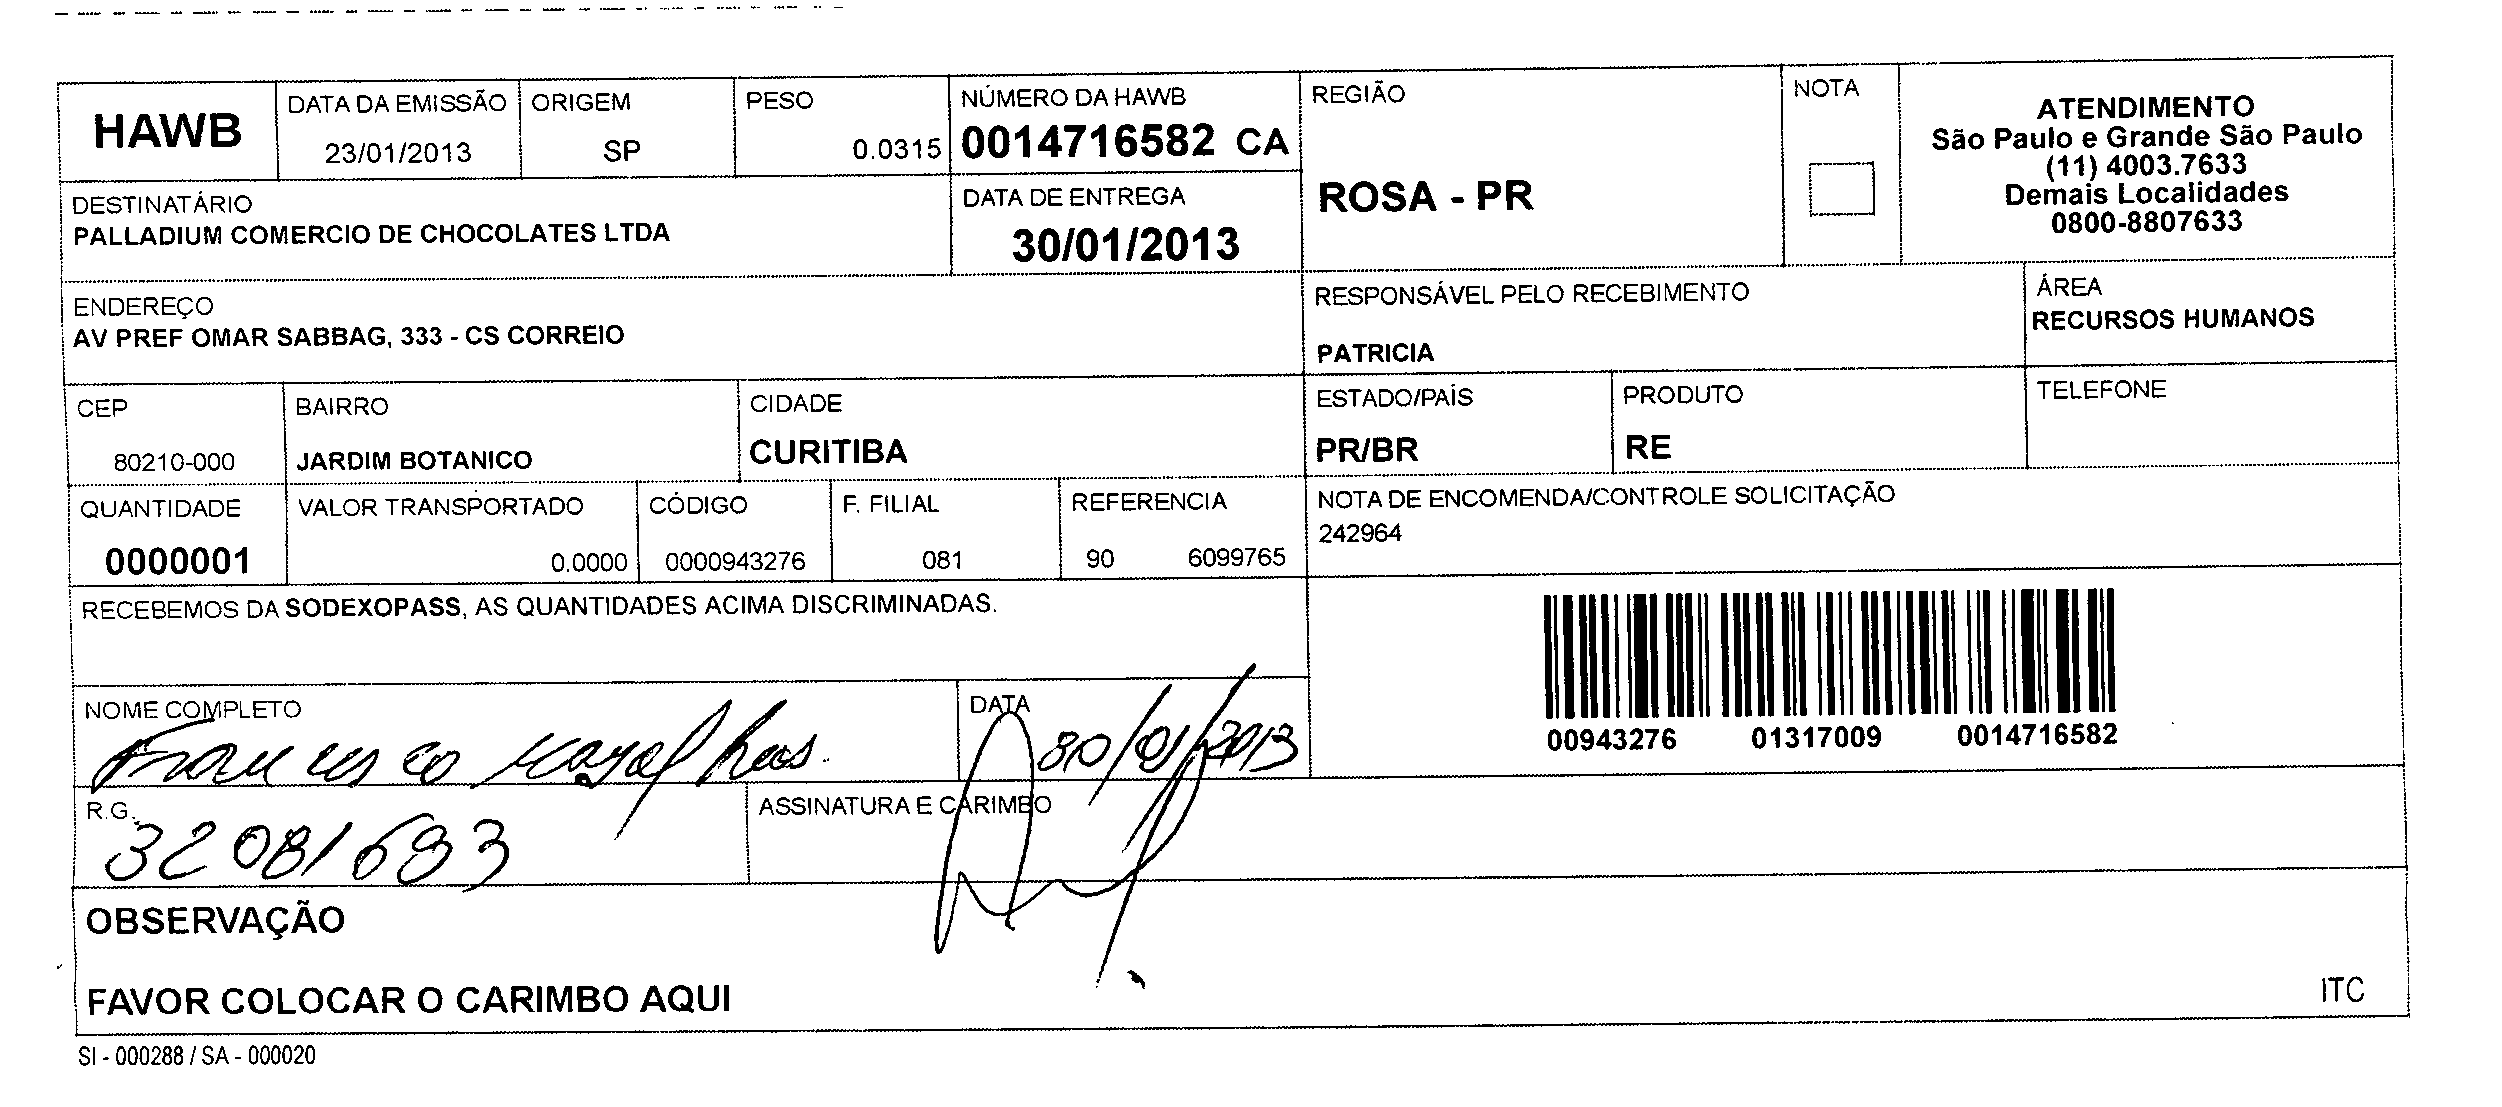 HAWB
DATA DA EMISSÃO
23/01/2013
ORIGEM
SP
PESO
0.0315
NÚMERO DA HAWB
0014716582 CA
REGIÃO
ROSA - PR
NOTA
ATENDIMENTO
São Paulo e Grande São Paulo
(11) 4003.7633
Demais Localidades
0800-8807633
DESTINATÁRIO
PALLADIUM COMERCIO DE CHOCOLATES LTDA
DATA DE ENTREGA
30/01/2013
ENDEREÇO
AV PREF OMAR SABBAG, 333 - CS CORREIO
RESPONSÁVEL PELO RECEBIMENTO
PATRICIA
ÁREA
RECURSOS HUMANOS
CEP
80210-000
BAIRRO
JARDIM BOTANICO
CIDADE
CURITIBA
ESTADO/PAÍS
PR/BR
PRODUTO
RE
TELEFONE
QUANTIDADE
0000001
VALOR TRANSPORTADO
0.0000
CÓDIGO
0000943276
F. FILIAL
081
REFERENCIA
90 6099765
NOTA DE ENCOMENDA/CONTROLE SOLICITAÇÃO
242964
RECEBEMOS DA SODEXOPASS, AS QUANTIDADES ACIMA DISCRIMINADAS.
00943276 01317009 0014716582
NOME COMPLETO
DATA
30/01/2013
R.G.
32081683
ASSINATURA E CARIMBO
OBSERVAÇÃO
FAVOR COLOCAR O CARIMBO AQUI
ITC
SI - 000288 / SA - 000020